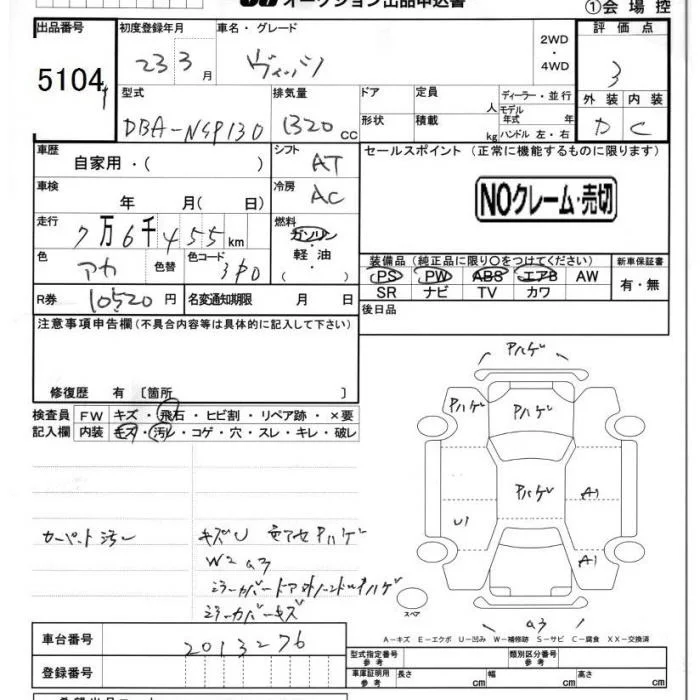 オークション出品申込書
①会場控
出品番号 初度登録年月 車名・グレード 2WD・4WD 評価点
5104 23 3月 ヴィッツ 3
型式 排気量 ドア 定員 人 ディーラー・並行 外装 内装
DBA-NSP130 1320cc 形状 積載 kg モデル年式 年 ハンドル 左・右 D C
車歴 自家用・( ) シフト AT セールスポイント (正常に機能するものに限ります)
車検 年 月(日) 冷房 AC NOクレーム・売切
走行 7万6千455km 燃料 ガソリン・軽油・( )
色 アカ 色替 色コード 3P0 装備品(純正品に限り○をつけてください) 新車保証書
PS PW ABS エアB AW 有・無
SR ナビ TV カワ
R券 10520円 名変通知期限 月 日 後日品
注意事項申告欄(不具合内容等は具体的に記入して下さい)
修復歴 有 〔箇所 〕
検査員 FW キズ・飛石・ヒビ割・リペア跡・×要
記入欄 内装 キズ・汚レ・コゲ・穴・スレ・キレ・破レ
Pハゲ
Pハゲ Pハゲ
Pハゲ A1
U1 A1
カーペット汚レ キズU Pハゲ
W2 a3
ミラーカバー ドア
ミラーカバーキズ
スペア
a3
A－キズ E－エクボ U－凹み W－補修跡 S－サビ C－腐食 XX－交換済
車台番号 2013276 型式指定番号 参考 類別区分番号 参考
登録番号 車庫証明用 参考 長さ cm 幅 cm 高さ cm